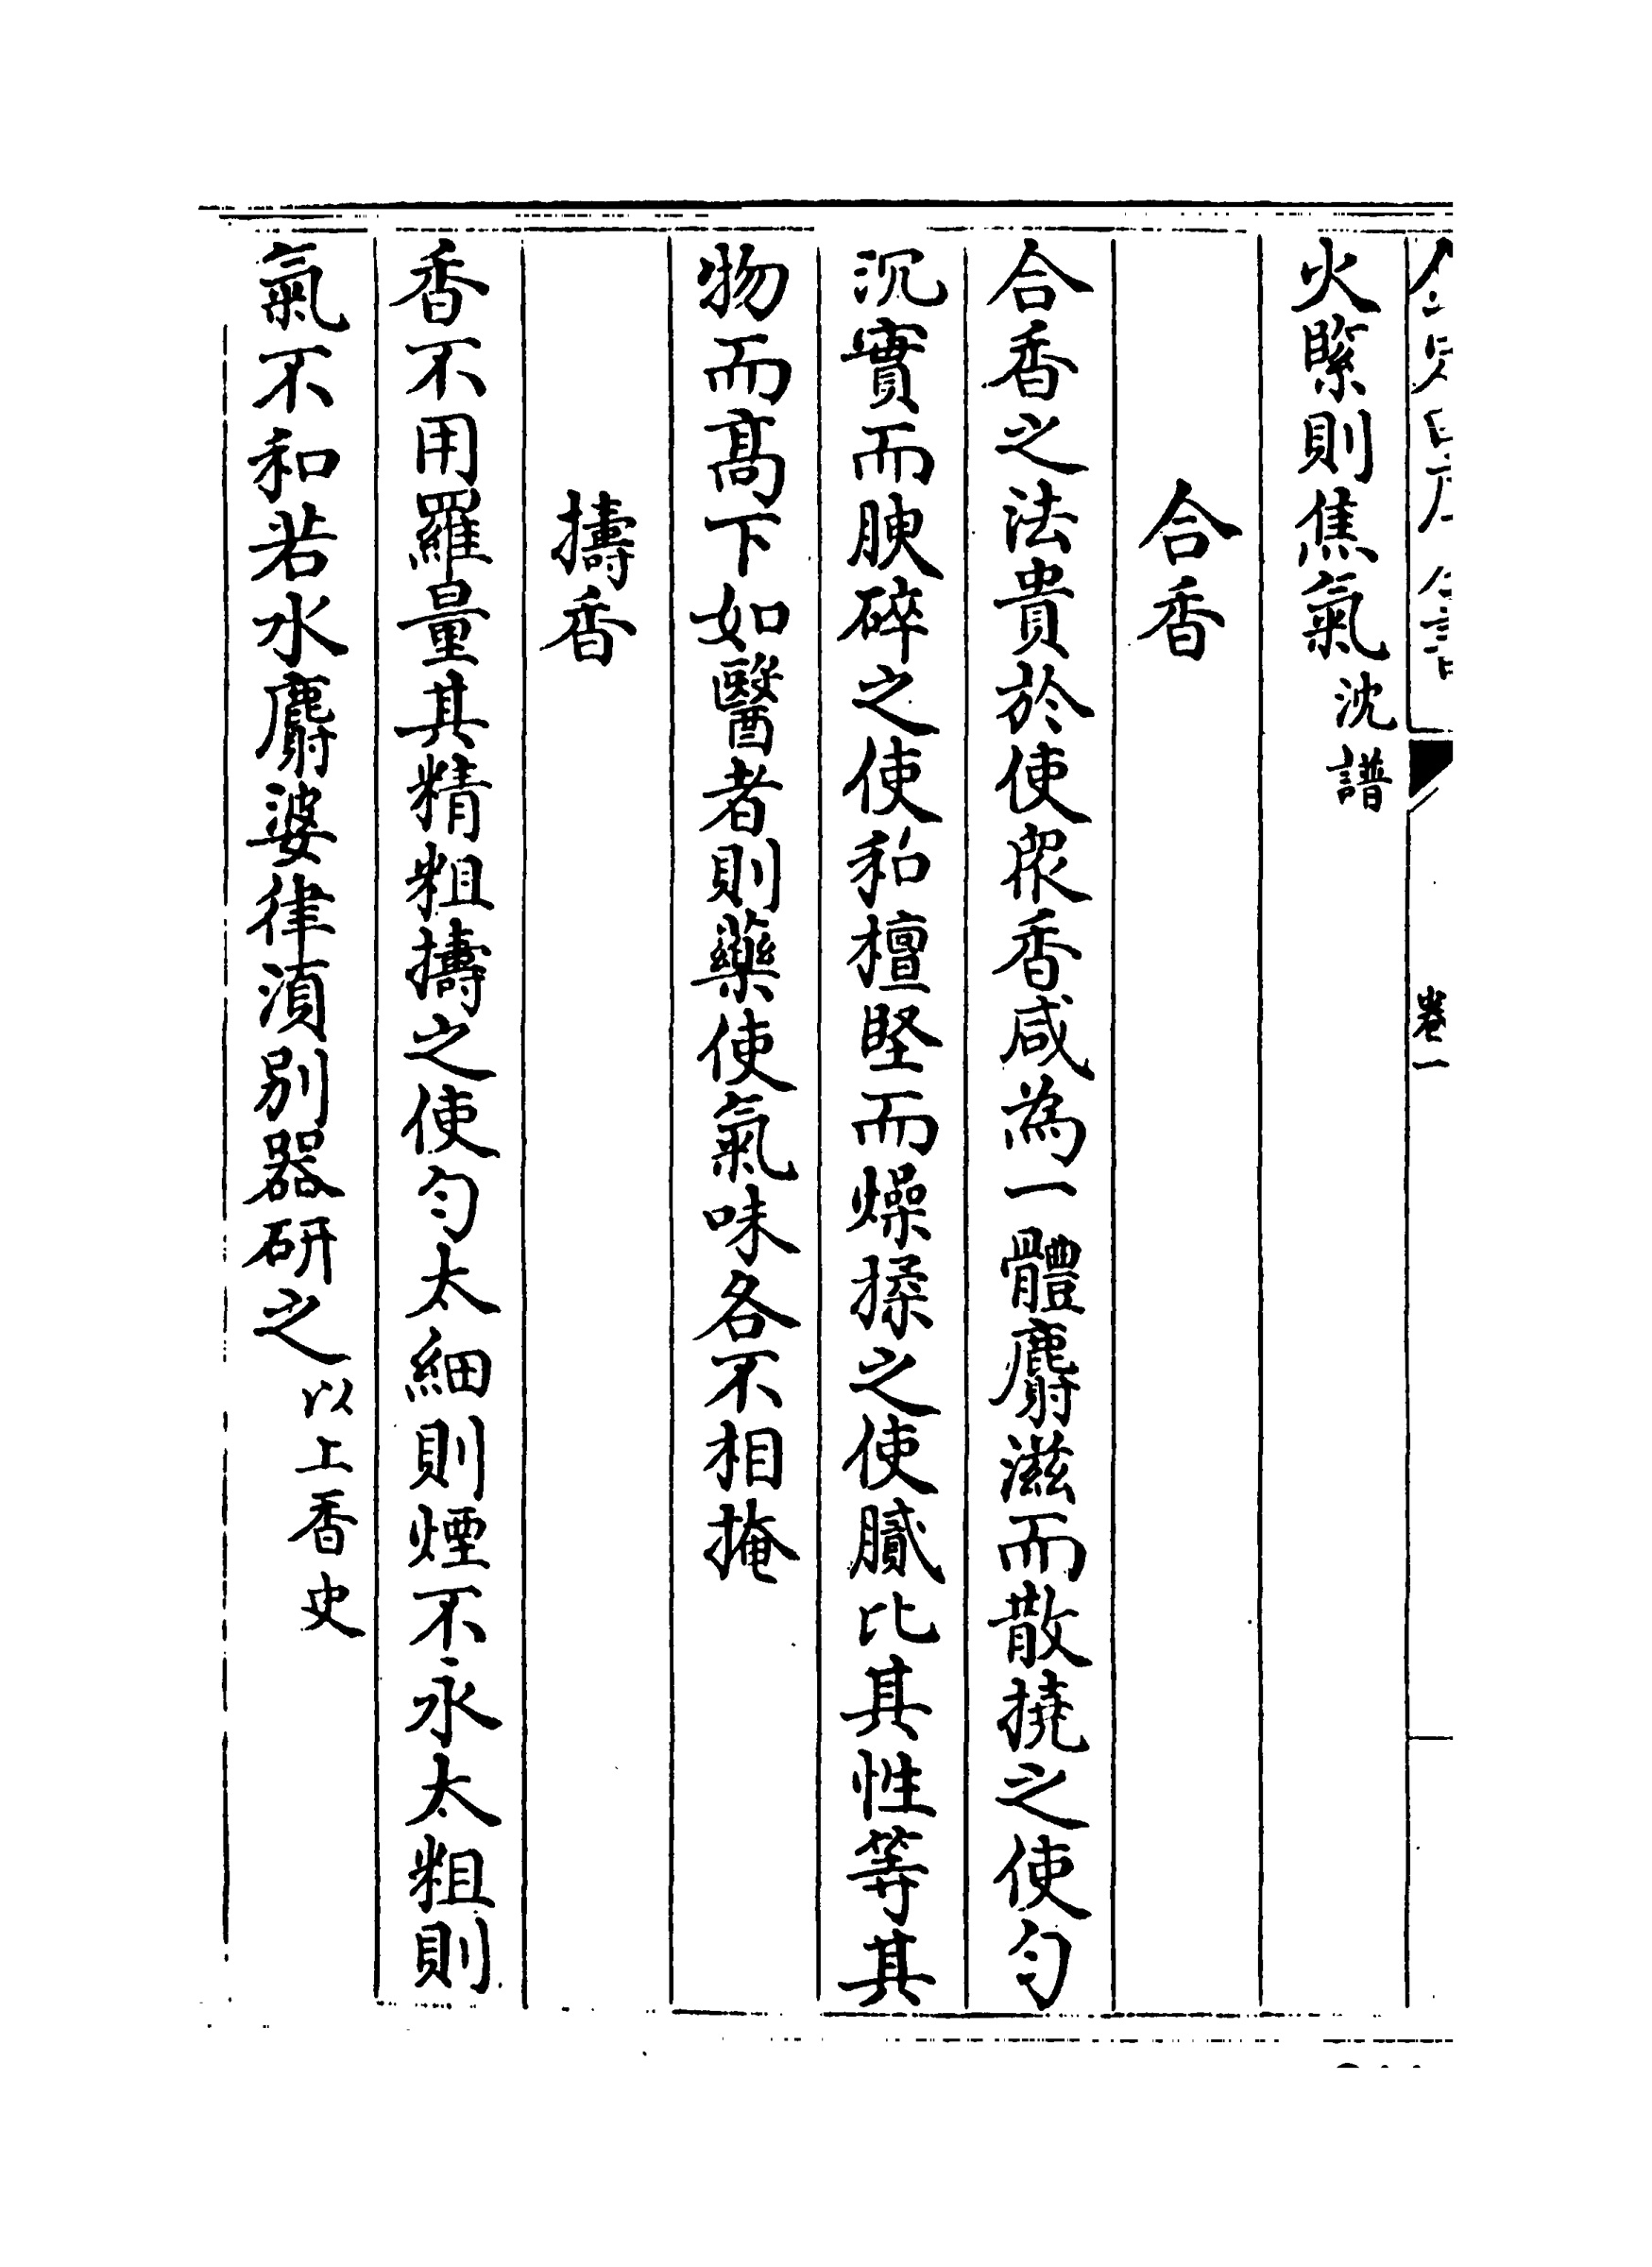 火緊則焦氣沈譜
合香
合香之法貴於使衆香咸為一體麝滋而散撓之使勻
沉實而腴碎之使和檀堅而燥揉之使膩比其性等其
物而髙下如醫者則藥使氣味各不相掩
擣香
香不用羅量其精粗擣之使勻太細則煙不永太粗則
氣不和若水麝婆律湏别器研之以上香史
卷一